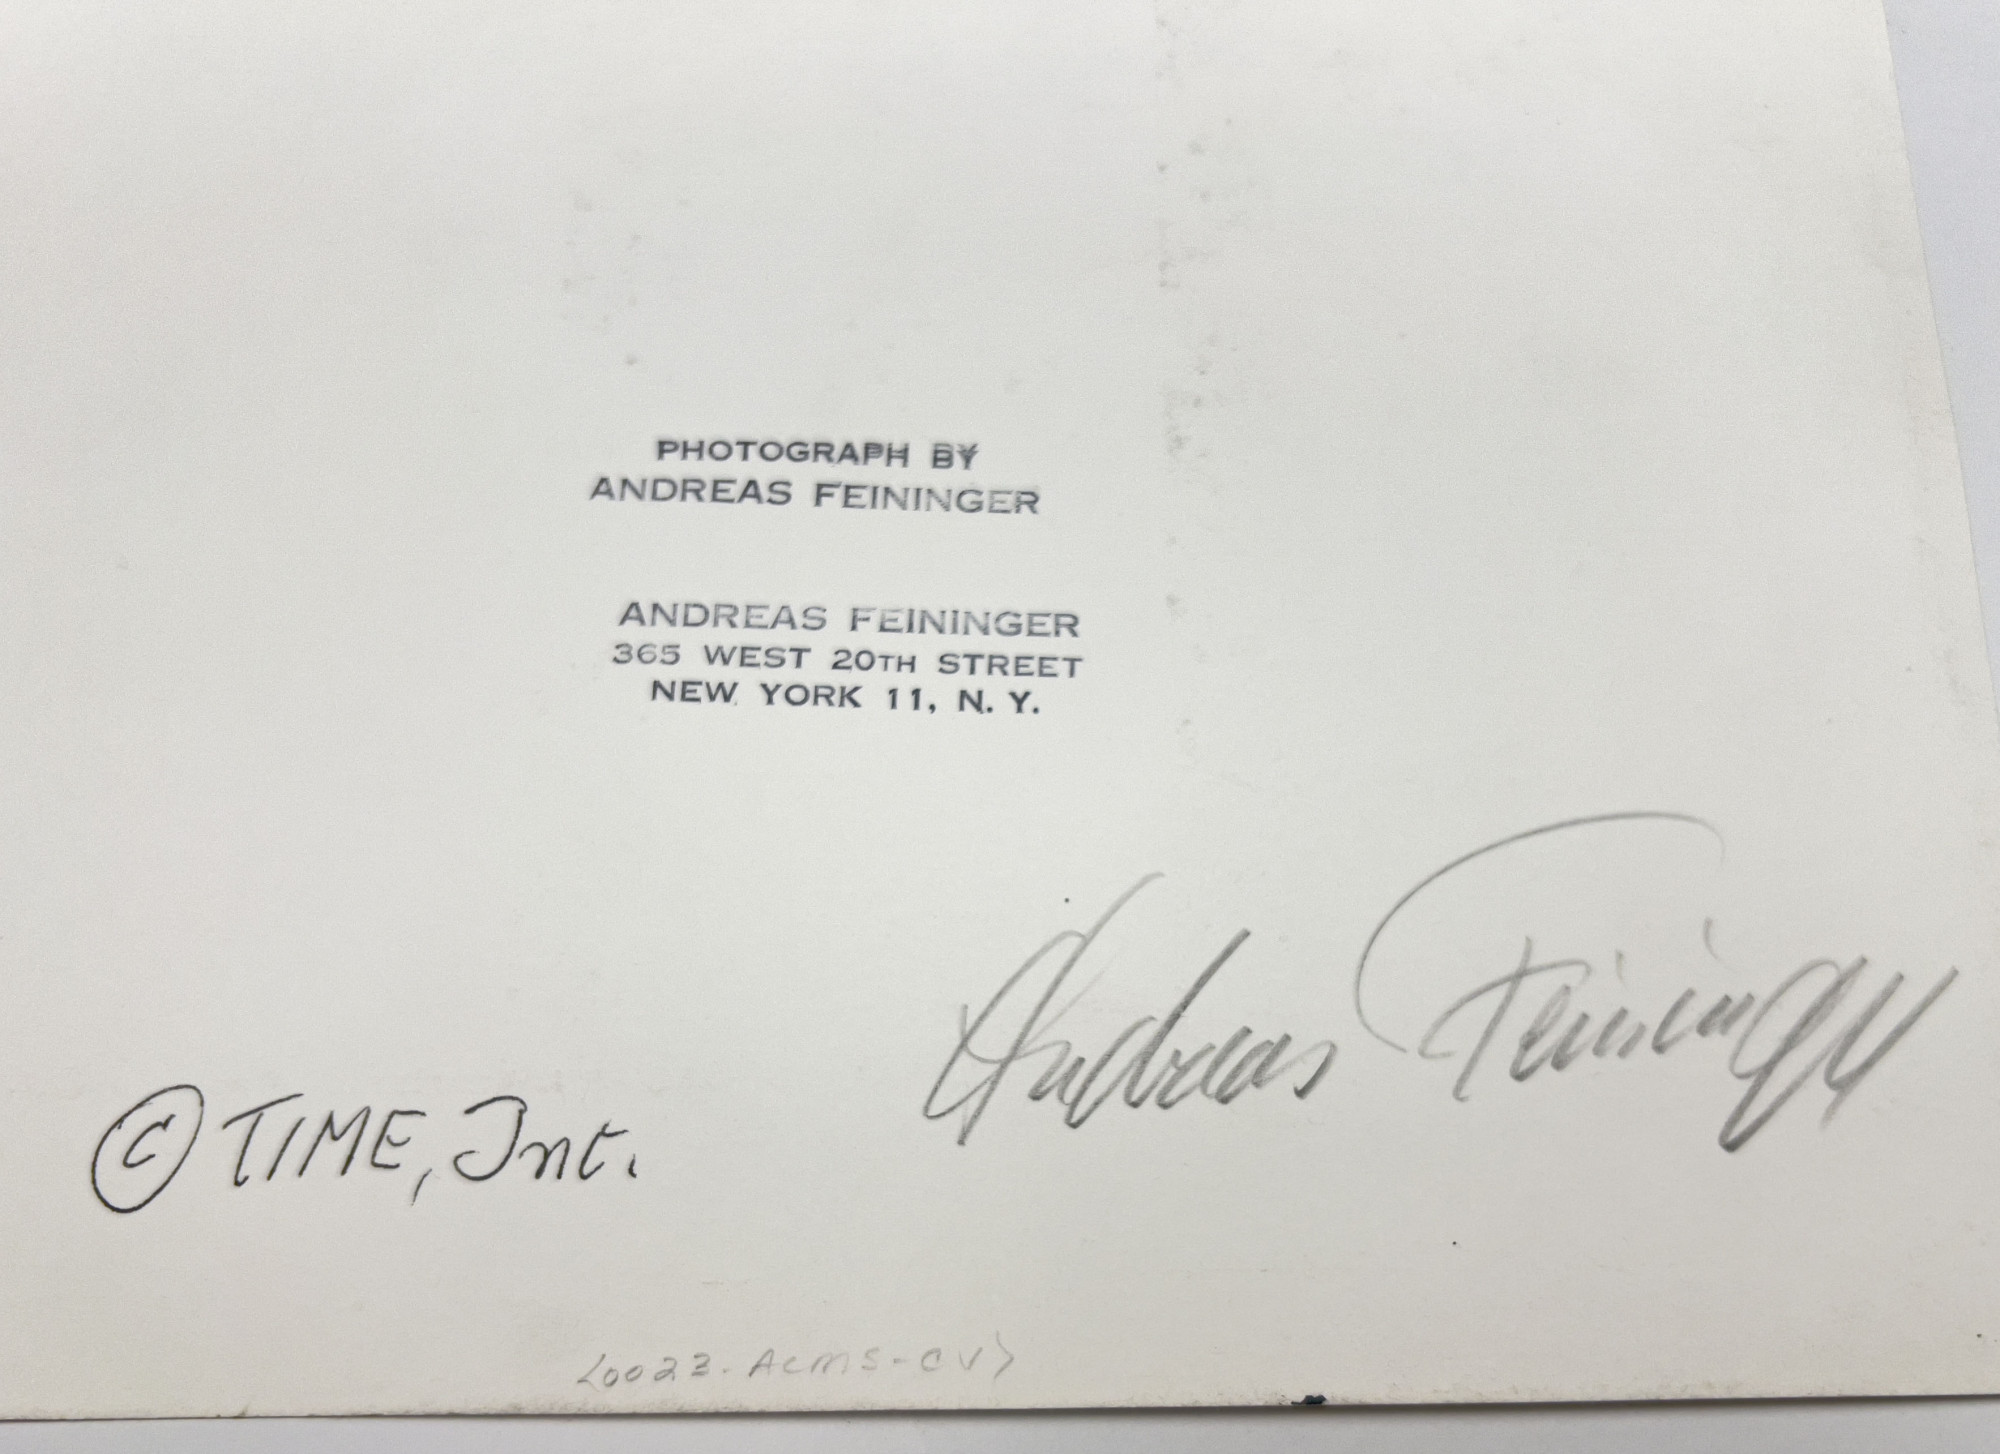 PHOTOGRAPH BY
ANDREAS FEININGER
ANDREAS FEININGER
365 WEST 20TH STREET
NEW YORK 11, N. Y.
Andreas Feininger
© TIME, Int.
<0023-ACMS-CV>